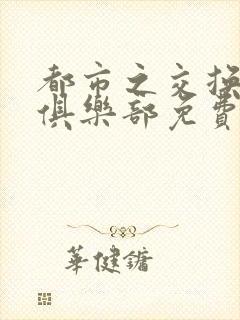 都市之交換
俱樂部免費
華健鏞